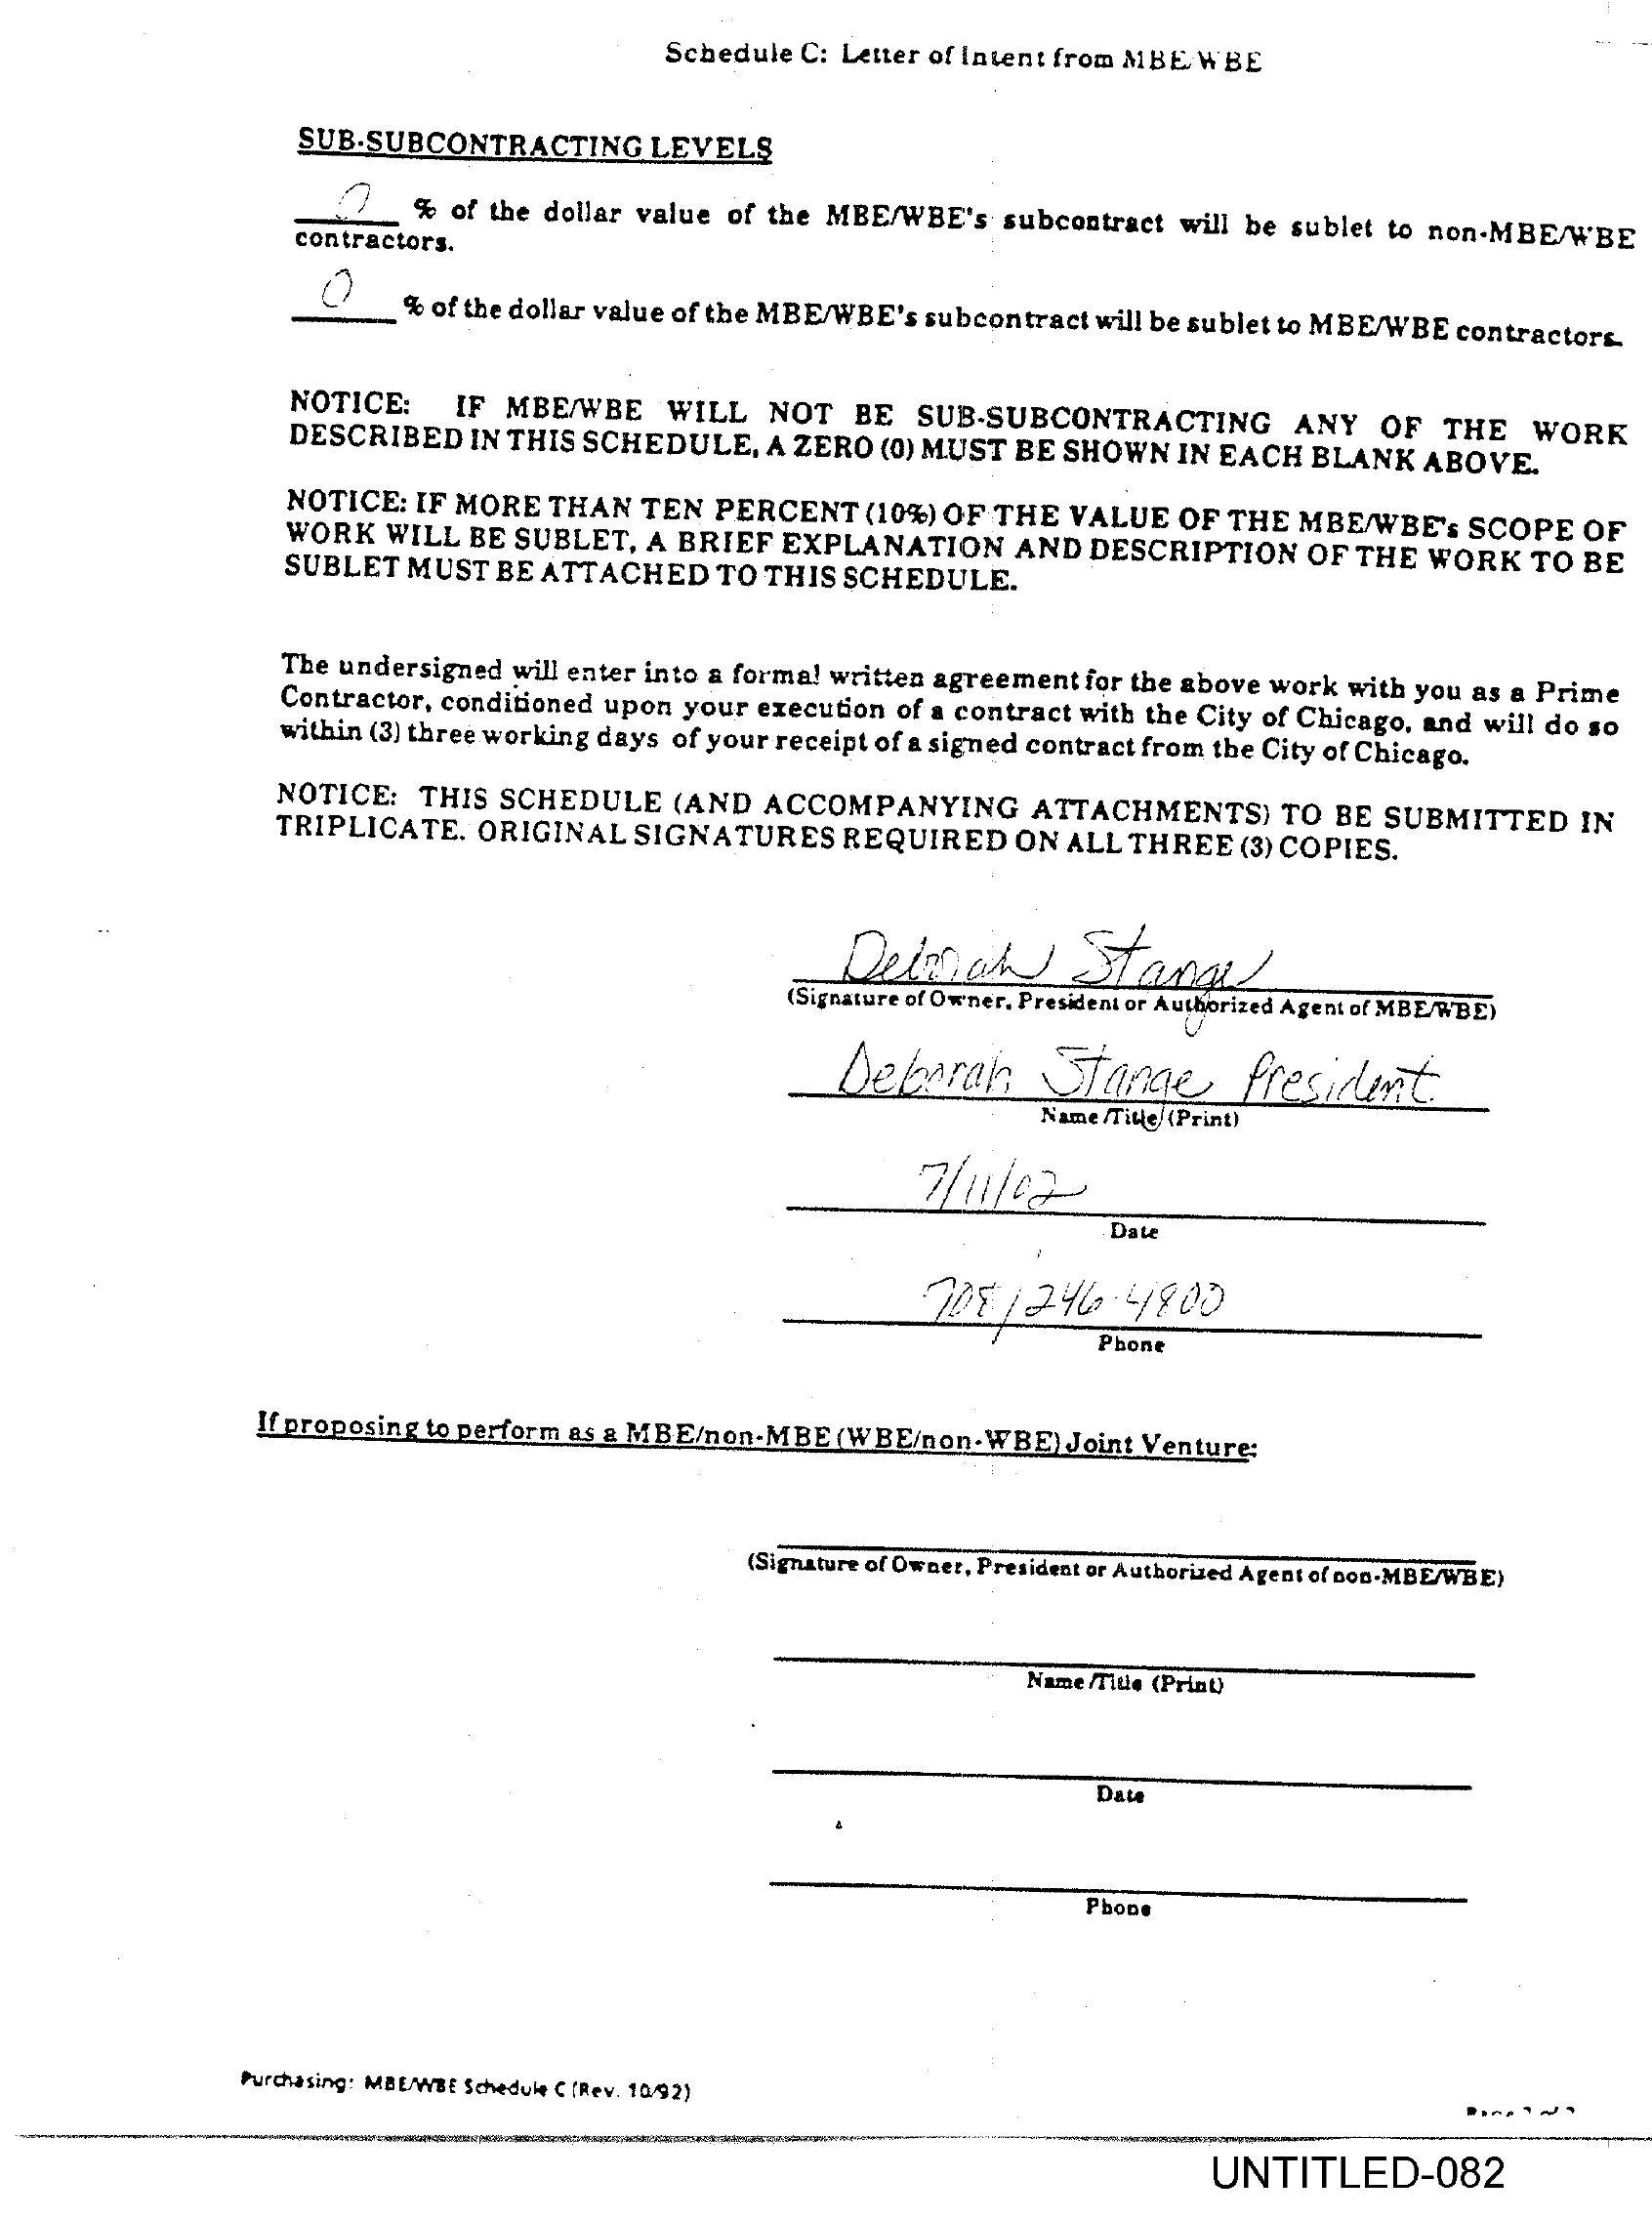 Schedule C: Letter of Intent from MBE/WBE
SUB-SUBCONTRACTING LEVELS
0 % of the dollar value of the MBE/WBE's subcontract will be sublet to non-MBE/WBE
contractors.
0 % of the dollar value of the MBE/WBE's subcontract will be sublet to MBE/WBE contractors.
NOTICE: IF MBE/WBE WILL NOT BE SUB-SUBCONTRACTING ANY OF THE WORK
DESCRIBED IN THIS SCHEDULE, A ZERO (0) MUST BE SHOWN IN EACH BLANK ABOVE.
NOTICE: IF MORE THAN TEN PERCENT (10%) OF THE VALUE OF THE MBE/WBE's SCOPE OF
WORK WILL BE SUBLET, A BRIEF EXPLANATION AND DESCRIPTION OF THE WORK TO BE
SUBLET MUST BE ATTACHED TO THIS SCHEDULE.
The undersigned will enter into a formal written agreement for the above work with you as a Prime
Contractor, conditioned upon your execution of a contract with the City of Chicago, and will do so
within (3) three working days of your receipt of a signed contract from the City of Chicago.
NOTICE: THIS SCHEDULE (AND ACCOMPANYING ATTACHMENTS) TO BE SUBMITTED IN
TRIPLICATE. ORIGINAL SIGNATURES REQUIRED ON ALL THREE (3) COPIES.
Deborah Stange
(Signature of Owner, President or Authorized Agent of MBE/WBE)
Deborah Stange President
Name/Title (Print)
7/11/02
Date
708/246-4800
Phone
If proposing to perform as a MBE/non-MBE (WBE/non-WBE) Joint Venture:
(Signature of Owner, President or Authorized Agent of non-MBE/WBE)
Name/Title (Print)
Date
Phone
Purchasing: MBE/WBE Schedule C (Rev. 10/92)
UNTITLED-082